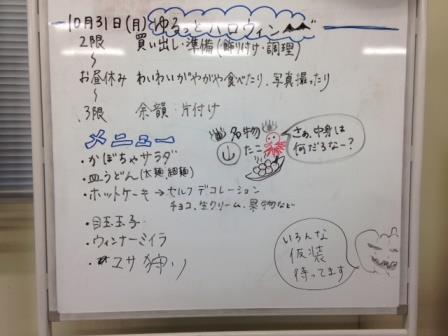 10月31日(月) ゆるっとハロウィン
2限 買い出し・準備(飾り付け・調理)
〜
お昼休み わいわいがやがや食べたり、写真撮ったり
〜
3限 余韻・片付け
メニュー
・かぼちゃサラダ
・皿うどん(太麺、細麺)
・ホットケーキ→セルフデコレーション
チョコ、生クリーム、果物など
・目玉玉子
・ウィンナーミイラ
・ユサ狩り
名物
山 たこ
さぁ、中身は
何だろなー?
いろんな
仮装
待ってます